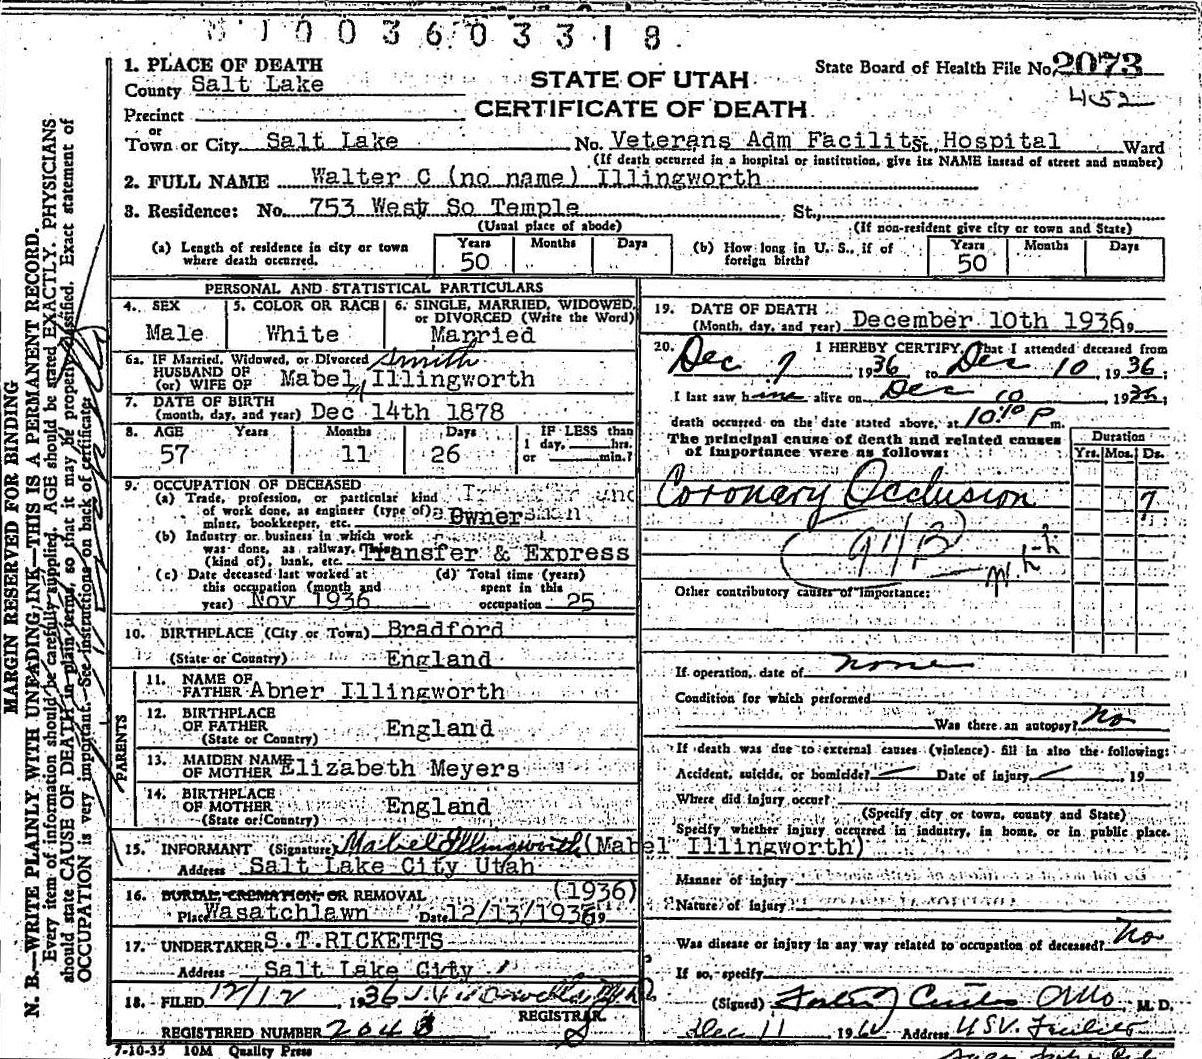 003603318
1. PLACE OF DEATH
County Salt Lake
STATE OF UTAH
CERTIFICATE OF DEATH
State Board of Health File No. 2073
452
Precinct
or
Town or City Salt Lake No. Veterans Adm Facility St., Hospital Ward
(If death occurred in a hospital or institution, give its NAME instead of street and number)
2. FULL NAME Walter C (no name) Illingworth
3. Residence: No. 753 West So Temple St.,
(Usual place of abode) (If non-resident give city or town and State)
(a) Length of residence in city or town where death occurred. Years 50 Months Days
(b) How long in U. S., if of foreign birth? Years 50 Months Days
PERSONAL AND STATISTICAL PARTICULARS
4. SEX Male
5. COLOR OR RACE White
6. SINGLE, MARRIED, WIDOWED, OR DIVORCED (Write the Word) Married
6a. IF Married, Widowed, or Divorced Smith
HUSBAND OF
(or) WIFE OF Mabel Illingworth
7. DATE OF BIRTH
(month, day, and year) Dec 14th 1878
8. AGE Years 57 Months 11 Days 26
IF LESS than
1 day, hrs.
or min.?
9. OCCUPATION OF DECEASED
(a) Trade, profession, or particular kind
of work done, as engineer (type of)
miner, bookkeeper, etc. Owner
(b) Industry or business in which work
was done, as railway,
(kind of), bank, etc. Transfer & Express
(c) Date deceased last worked at
this occupation (month and
year) Nov 1936
(d) Total time (years)
spent in this
occupation 25
10. BIRTHPLACE (City or Town) Bradford
(State or Country) England
PARENTS
11. NAME OF
FATHER Abner Illingworth
12. BIRTHPLACE
OF FATHER England
(State or Country)
13. MAIDEN NAME
OF MOTHER Elizabeth Meyers
14. BIRTHPLACE
OF MOTHER England
(State or Country)
15. INFORMANT (Signature) Mabel Illingworth (Mabel Illingworth)
Address Salt Lake City Utah
16. BURIAL, CREMATION, OR REMOVAL (1936)
Place Wasatchlawn Date 12/13/1936 19
17. UNDERTAKER S.T.RICKETTS
Address Salt Lake City
18. FILED 12/12, 1936
REGISTRAR
REGISTERED NUMBER 2043
7-10-35 10M Quality Press
19. DATE OF DEATH
(Month, day, and year) December 10th 1936, 19
20. I HEREBY CERTIFY, That I attended deceased from
Dec 7 1936 to Dec 10, 1936;
I last saw him alive on Dec 10, 1936;
death occurred on the date stated above, at 10:10 P m.
The principal cause of death and related causes
of importance were as follows:
Duration
Yrs. Mos. Ds.
Coronary Occlusion 7
Other contributory causes of importance:
If operation, date of none
Condition for which performed
Was there an autopsy? No
If death was due to external causes (violence) fill in also the following:
Accident, suicide, or homicide? — Date of injury —, 19
Where did injury occur?
(Specify city or town, county and State)
Specify whether injury occurred in industry, in home, or in public place.
Manner of injury
Nature of injury
Was disease or injury in any way related to occupation of deceased? No
If so, specify
(Signed) Curtis M. D.
Dec 11 19 Address USV. Facility
MARGIN RESERVED FOR BINDING
N. B.—WRITE PLAINLY WITH UNFADING INK—THIS IS A PERMANENT RECORD.
Every item of information should be carefully supplied. AGE should be stated EXACTLY. PHYSICIANS
should state CAUSE OF DEATH in plain terms, so that it may be properly classified. Exact statement of
OCCUPATION is very important. See instructions on back of certificate.